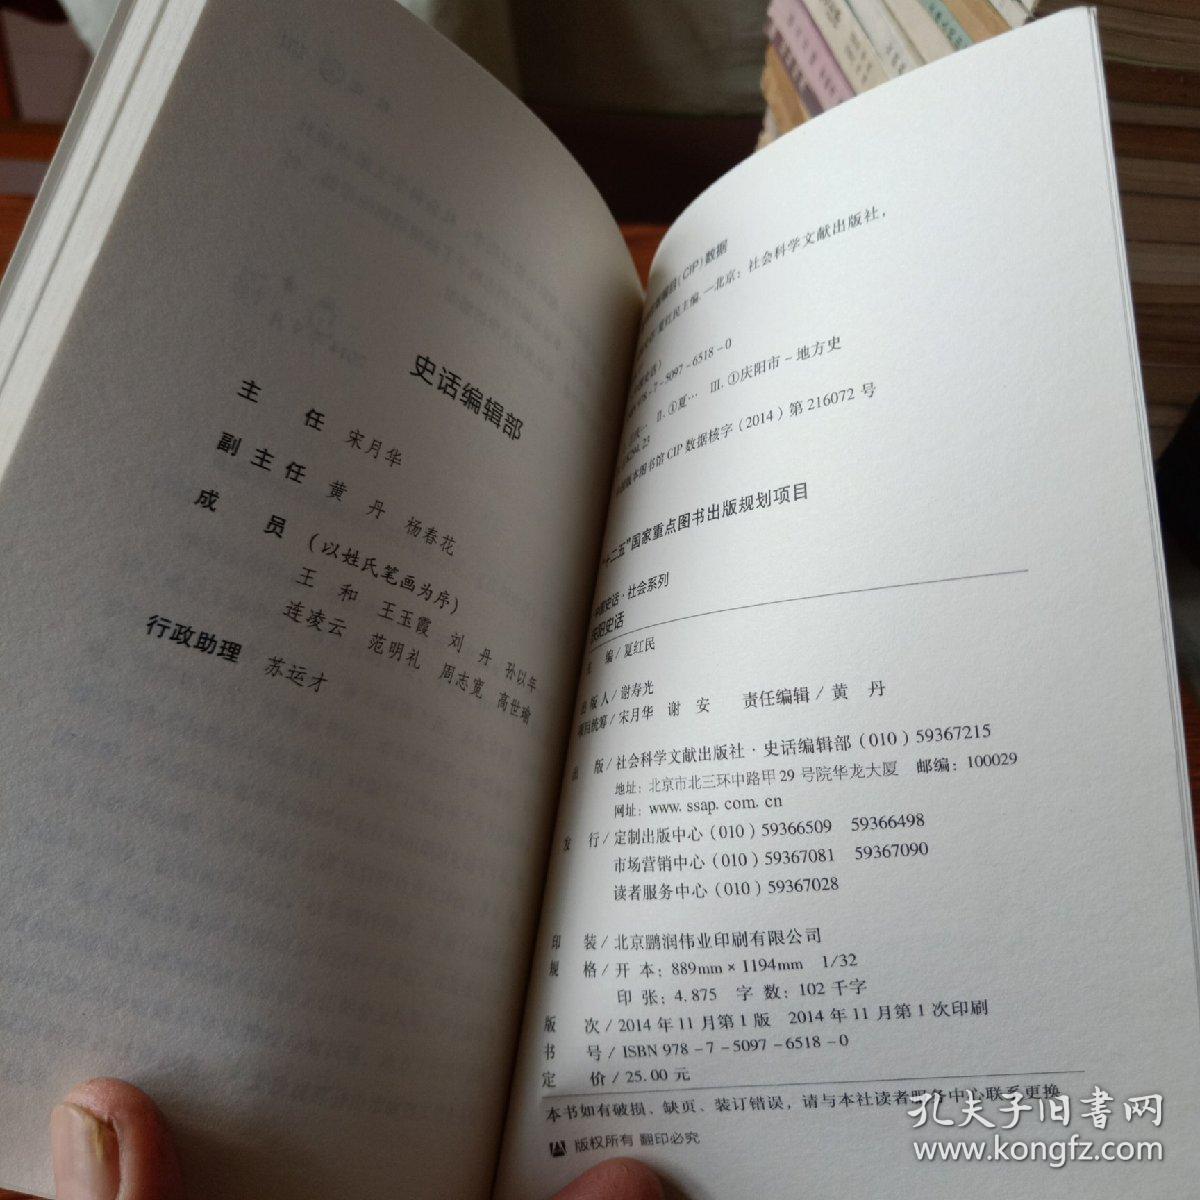 史话编辑部
主 任 宋月华
副主任 黄 丹 杨春花
成 员 (以姓氏笔画为序)
王 和 王玉霞 刘 丹 孙以年
连凌云 范明礼 周志宽 高世瑜
行政助理 苏运才
(CIP)数据
夏红民主编.—北京：社会科学文献出版社，
978-7-5097-6518-0
Ⅱ.①夏… Ⅲ.①庆阳市-地方史
版本图书馆CIP数据核字(2014)第216072号
“十二五”国家重点图书出版规划项目
中国史话·社会系列
庆阳史话
主 编/夏红民
出版人/谢寿光
项目统筹/宋月华 谢 安 责任编辑/黄 丹
出 版/社会科学文献出版社·史话编辑部(010)59367215
地址：北京市北三环中路甲29号院华龙大厦 邮编：100029
网址：www.ssap.com.cn
发 行/定制出版中心(010)59366509 59366498
市场营销中心(010)59367081 59367090
读者服务中心(010)59367028
印 装/北京鹏润伟业印刷有限公司
规 格/开 本：889mm×1194mm 1/32
印 张：4.875 字 数：102千字
版 次/2014年11月第1版 2014年11月第1次印刷
书 号/ISBN 978-7-5097-6518-0
定 价/25.00元
本书如有破损、缺页、装订错误，请与本社读者服务中心联系更换
版权所有 翻印必究
孔夫子旧书网
www.kongfz.com